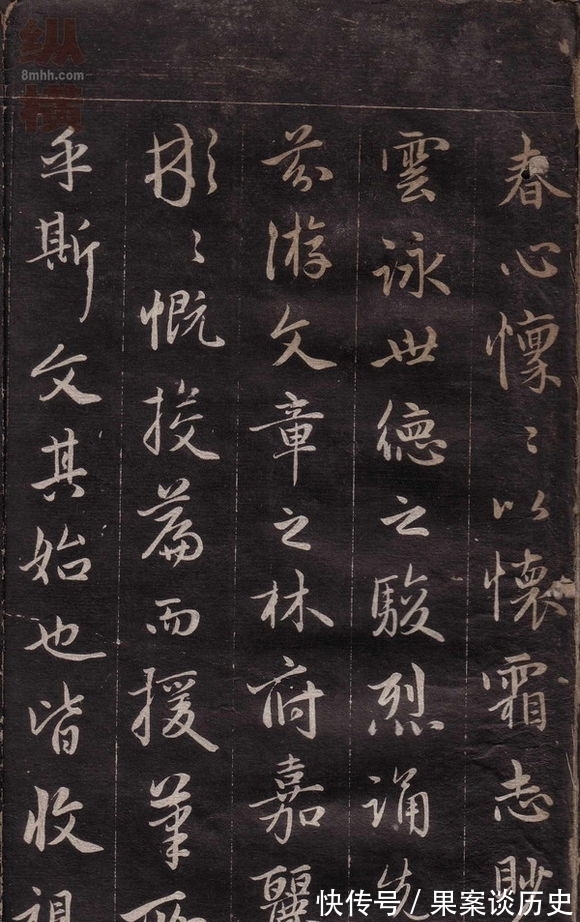 春心懍〻以懷霜志眇
雲詠世德之駿烈誦先
芬游文章之林府嘉麗
彬〻慨投篇而援筆聊
乎斯文其始也皆收視
纵横
8mhh.com
快传号/果案谈历史